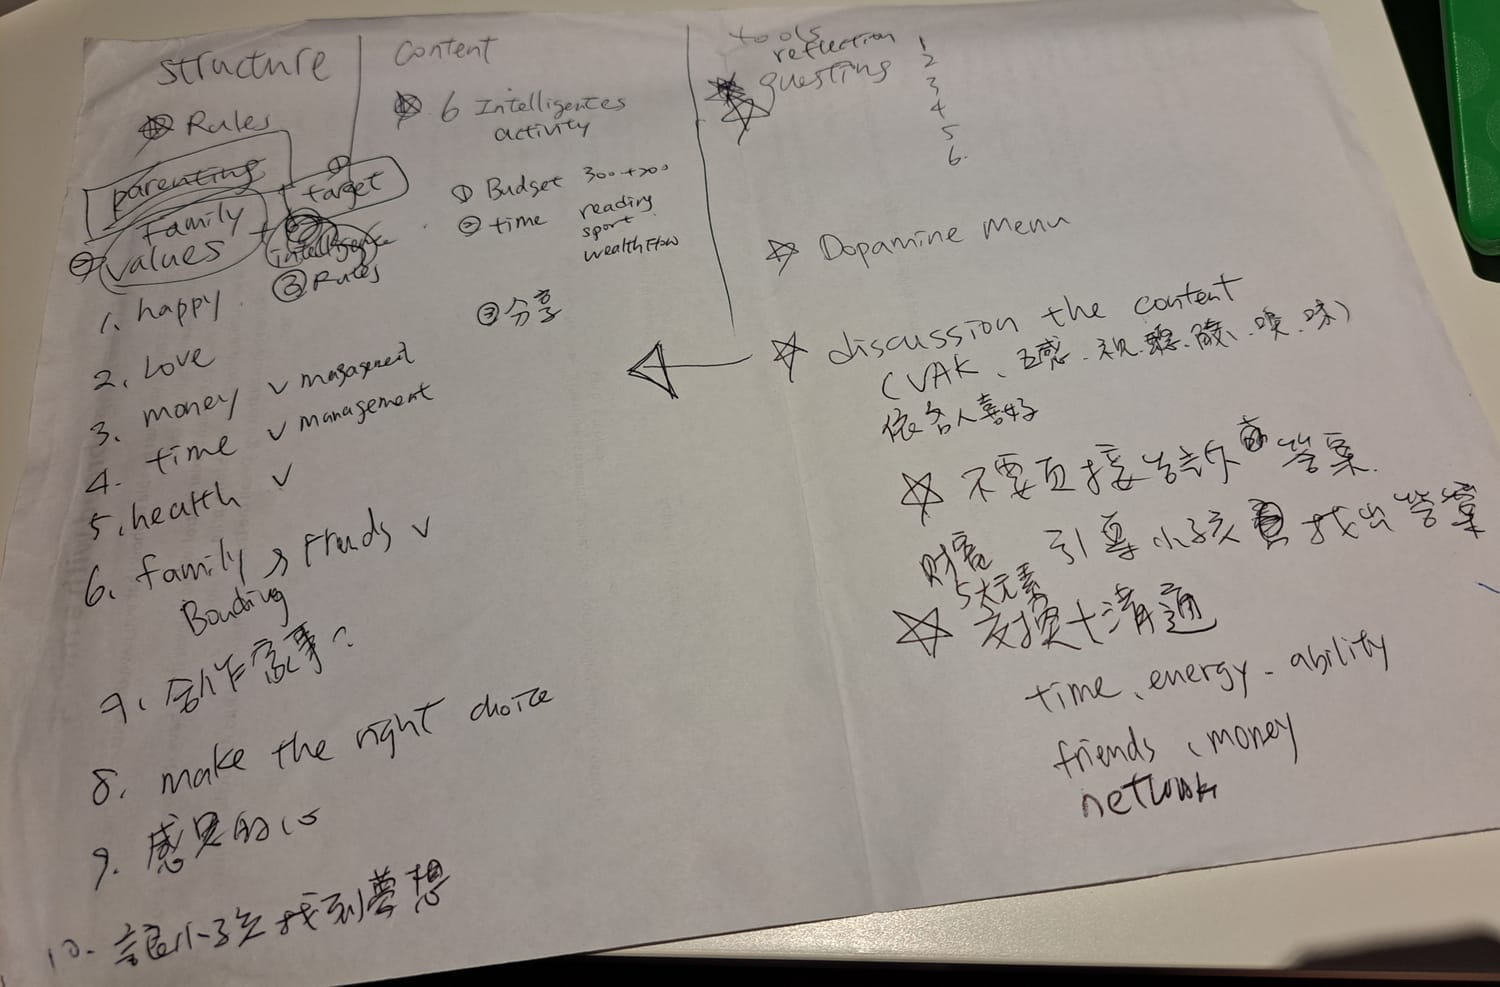 structure
Rules
parenting
① target
② Family
values
+ intelligence
③ Rules
1. happy
2. Love
3. money ✓ management
4. time ✓ management
5. health ✓
6. family, friends ✓
Bonding
7. 創作故事?
8. make the right choice
9. 感恩的心
10. 讓小孩找到夢想
content
6 Intelligentes
activity
① Budget 300+200
② time reading
sport
wealth Flow
③ 分享
tools
reflection
questing
1
2
3
4
5
6.
☆ Dopamine Menu
☆ discussion the content
(VAK、五感、視、聽、觸、嗅、味)
依各人喜好
☆ 不要直接告訴 答案.
引導小孩 找出答案
財富
5大元素
☆ 交換+溝通
time、energy - ability
friends、money
network